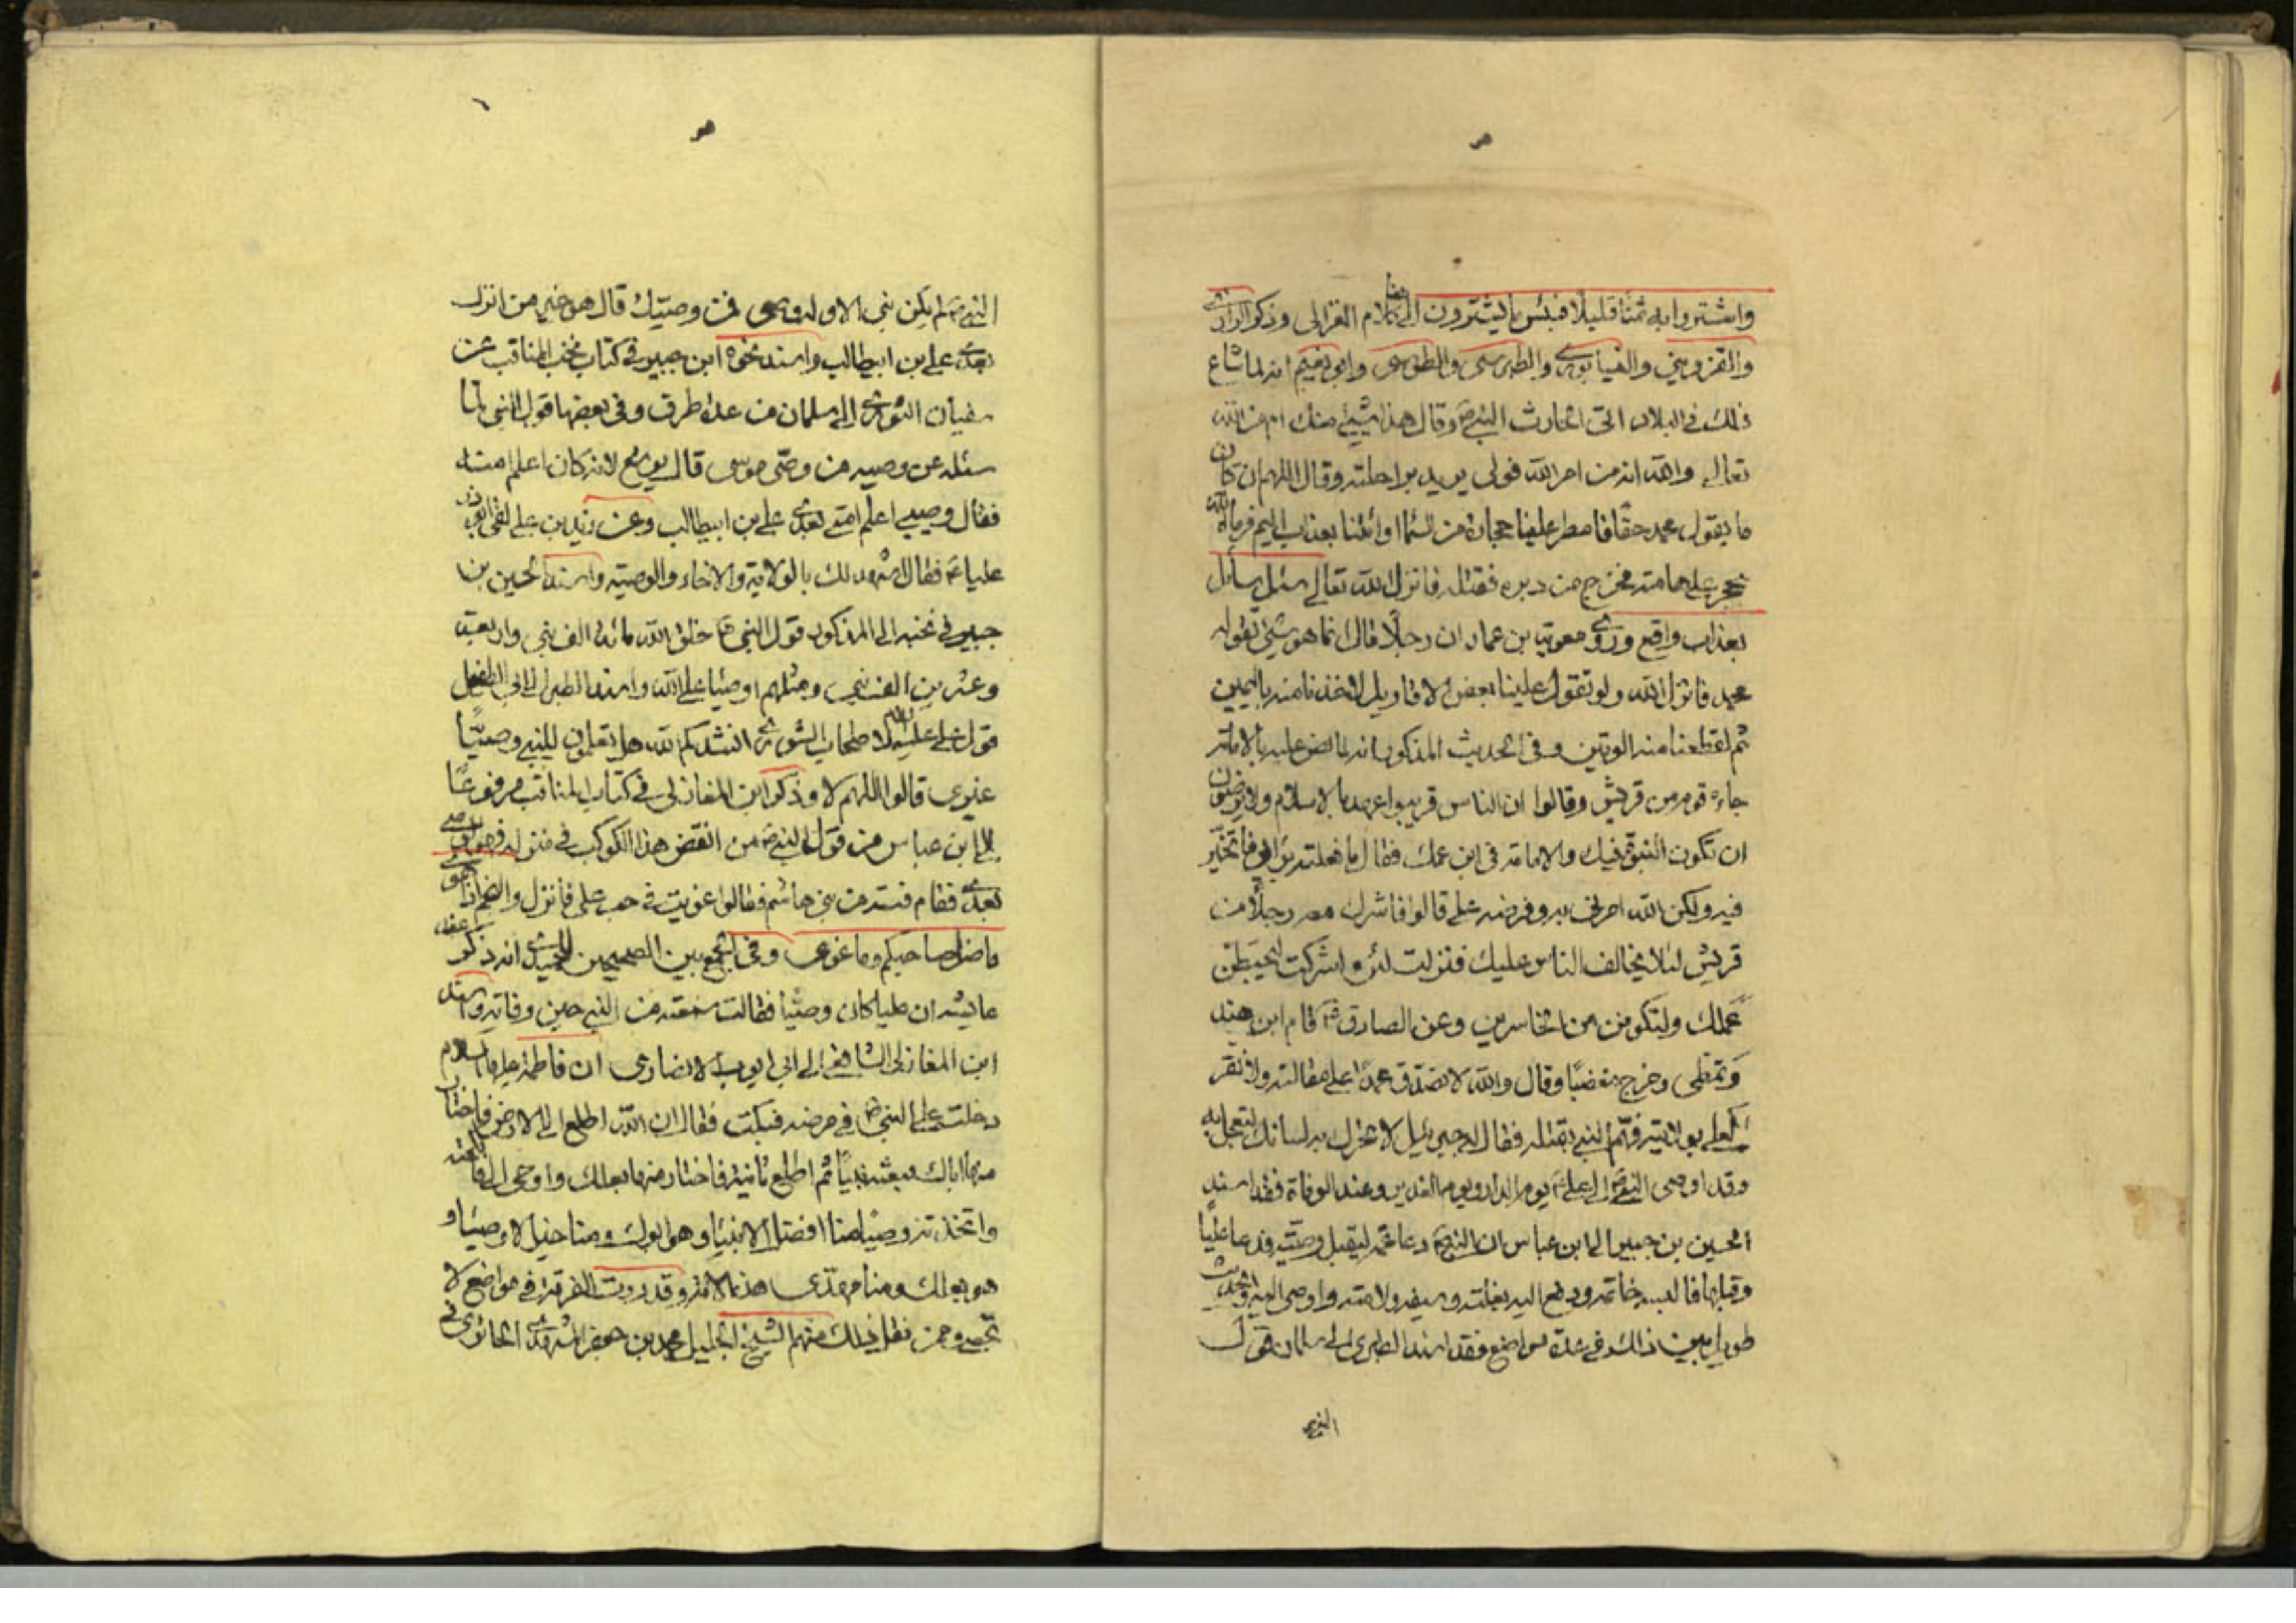 هو
واشتروا به ثمنا قليلا فبئس ما يشترون الى هنا كلام الغزالي وذكر الرازي
والقزويني والنيسابوري والطبرسي والطوسي وابو نعيم انه لما شاع
ذلك في البلاد اتى الحارث النبي ص وقال هذا شيء منك ام من الله
تعالى والله انه من امر الله فولى يريد براحلته وقال اللهم ان كان
ما يقول محمد حقا فامطر علينا حجارة من السما او ائتنا بعذاب اليم فرماه الله
بحجر على هامته فخرج من دبره فقتله فانزل الله تعالى سئل سائل
بعذاب واقع وروى معوية بن عمار ان رجلا قال انما هو شيء تقوله
محمد فانزل الله ولو تقول علينا بعض الاقاويل لاخذنا منه باليمين
ثم لقطعنا منه الوتين وفي الحديث المذكور انه لما نص عليه بالامامة
جاءه قوم من قريش وقالوا ان الناس قريبوا عهد بالاسلام ولا يرضون
ان تكون النبوة فيك والامامة في ابن عمك فقال ما فعلته برايى فاتخير
فيه ولكن الله امرني به وفرضه على قالوا فاشرك معه رجلا من
قريش لئلا يخالف الناس عليك فنزلت لئن اشركت ليحبطن
عملك ولتكونن من الخاسرين وعن الصادق ع قام ابن هند
وتمطى وخرج مغضبا وقال والله لا نصدق محمدا على مقالته ولا نقر
لعلى بولايته فهم النبي بقتله فقال له جبرئيل لا تحرك به لسانك لتعجل به
وقد اوصى النبي ص الى على ع يوم الدار ويوم الغدير وعند الوفاة فقد اسند
الحسين بن جبير الى ابن عباس ان النبي ص دعا عمه ليقبل وصيته فدعا عليا
وقبلها فالبسه خاتمه ودفع اليه بغلته وسيفه ولامته واوصى اليه والحديث
طويل مبين ذلك في عدة مواضع فقد اسند الطبري الى سلمان قول
النبي
هو
النبي ص لم يكن نبي الا وله وصى فمن وصيك قال هو خير من اترك
بعدي على بن ابيطالب واسند نحوه ابن جبير في كتاب نخب المناقب عن
سفيان الثوري الى سلمان من عدة طرق وفي بعضها قول النبي لما
سئله عن وصيه من وصى موسى قال يوشع لانه كان اعلم امته
فقال وصيي اعلم امتى بعدي على بن ابيطالب وعن زيد بن على لقى ابوذر
عليا ع فقال اشهد لك بالولاية والاخاء والوصية واسند الحسين بن
جبير في نخبه الى المذكور قول النبي ص خلق الله مائة الف نبي واربعة
وعشرين الف نبي ومثلهم اوصيا على الله واسند الطبري الى ابي الطفيل
قول على عليه السلام لاصحاب الشورى انشدكم الله هل تعلمون للنبي وصيا
غيري قالوا اللهم لا وذكر ابن المغازلي في كتاب المناقب مرفوعا
الى ابن عباس من قول النبي ص من انقض هذا الكوكب في منزله فهو وصي
بعدي فقام فتية من بني هاشم فقالوا غويت في حب علي فانزل والنجم اذا هوى
ما ضل صاحبكم وما غوى وفي الجمع بين الصحيحين انه ذكر عند
عايشه ان عليا كان وصيا فقالت سمعته من النبي حين وفاته واسند
ابن المغازلي الشافعي الى ابي ايوب الانصاري ان فاطمة عليها السلام
دخلت على النبي ص في مرضه فبكت فقال ان الله اطلع الى الارض فاختار
منها اباك فبعثه نبيا ثم اطلع ثانية فاختار منها بعلك واوحى الى فانكحته
واتخذته وصيا منا افضل الانبيا وهو ابوك ومنا خير الاوصيا و
هو بعلك ومنا مهدى هذه الامة وقد روت الفرقة في مواضع لا
تحصى وممن نقل ذلك منهم الشيخ الجليل محمد بن جعفر المشهدى الحائرى في